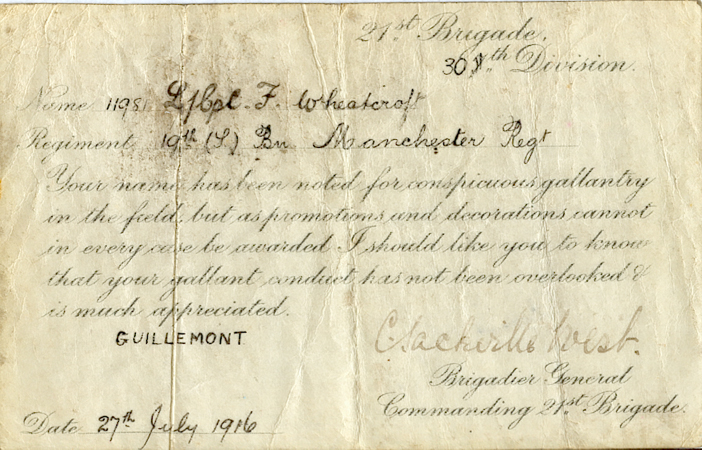 21st Brigade.
30th Division.
Name 11981 L/Cpl. F. Wheatcroft
Regiment 19th (S) Bn Manchester Regt
Your name has been noted for conspicuous gallantry
in the field, but as promotions and decorations cannot
in every case be awarded I should like you to know
that your gallant conduct has not been overlooked &
is much appreciated.
GUILLEMONT
C Sackville West.
Brigadier General
Commanding 21st Brigade.
Date 27th July 1916